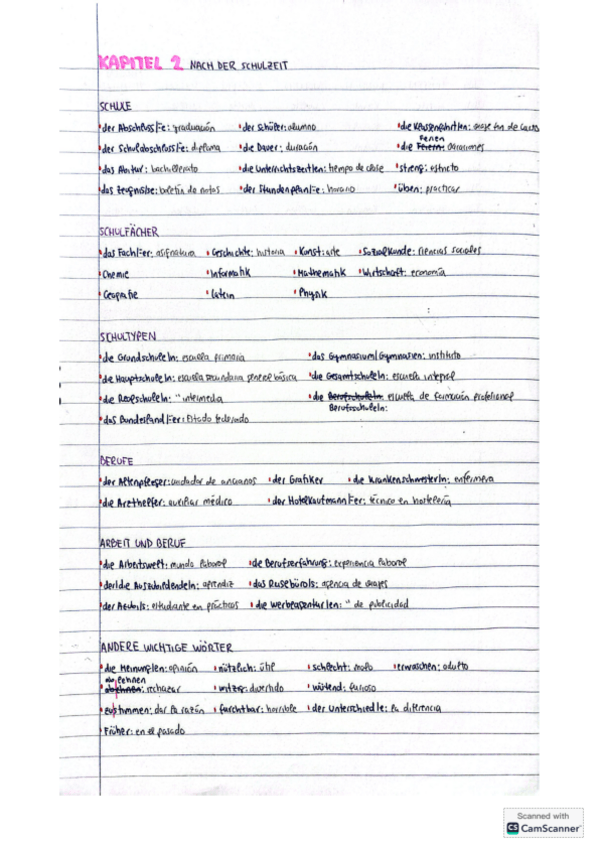 KAPITEL 2 NACH DER SCHULZEIT
SCHULE
der Abschluss/e: graduación der Schüler: alumno die Klassenfahrt/en: viaje fin de curso
der Schulabschluss/e: diploma die Dauer: duración die Ferien: vacaciones
das Abitur: bachillerato die Unterrichtszeit/en: tiempo de clase streng: estricto
das Zeugnis/se: boletín de notas der Stundenplan/e: horario üben: practicar
SCHULFÄCHER
das Fach/er: asignatura Geschichte: historia Kunst: arte Sozialkunde: ciencias sociales
Chemie Informatik Mathematik Wirtschaft: economía
Geografie Latein Physik
SCHULTYPEN
die Grundschule/n: escuela primaria das Gymnasium/Gymnasien: instituto
die Hauptschule/n: escuela secundaria general básica die Gesamtschule/n: escuela integral
die Realschule/n: " intermedia die Berufsschule/n: escuela de formación profesional
das Bundesland/er: Estado federado
BERUFE
der Altenpfleger: cuidador de ancianos der Grafiker die Krankenschwester/n: enfermera
die Arzthelfer: auxiliar médico der Hotelkaufmann/er: técnico en hostelería
ARBEIT UND BERUF
die Arbeitswelt: mundo laboral die Berufserfahrung: experiencia laboral
der/die Auszubildende/n: aprendiz das Reisebüro/s: agencia de viajes
der Azubi/s: estudiante en prácticas die Werbeagentur/en: " de publicidad
ANDERE WICHTIGE WÖRTER
die Meinung/en: opinión nützlich: útil schlecht: malo erwachsen: adulto
ablehnen: rechazar witzig: divertido wütend: furioso
zustimmen: dar la razón furchtbar: horrible der Unterschied/e: la diferencia
Früher: en el pasado
Scanned with
CS CamScanner